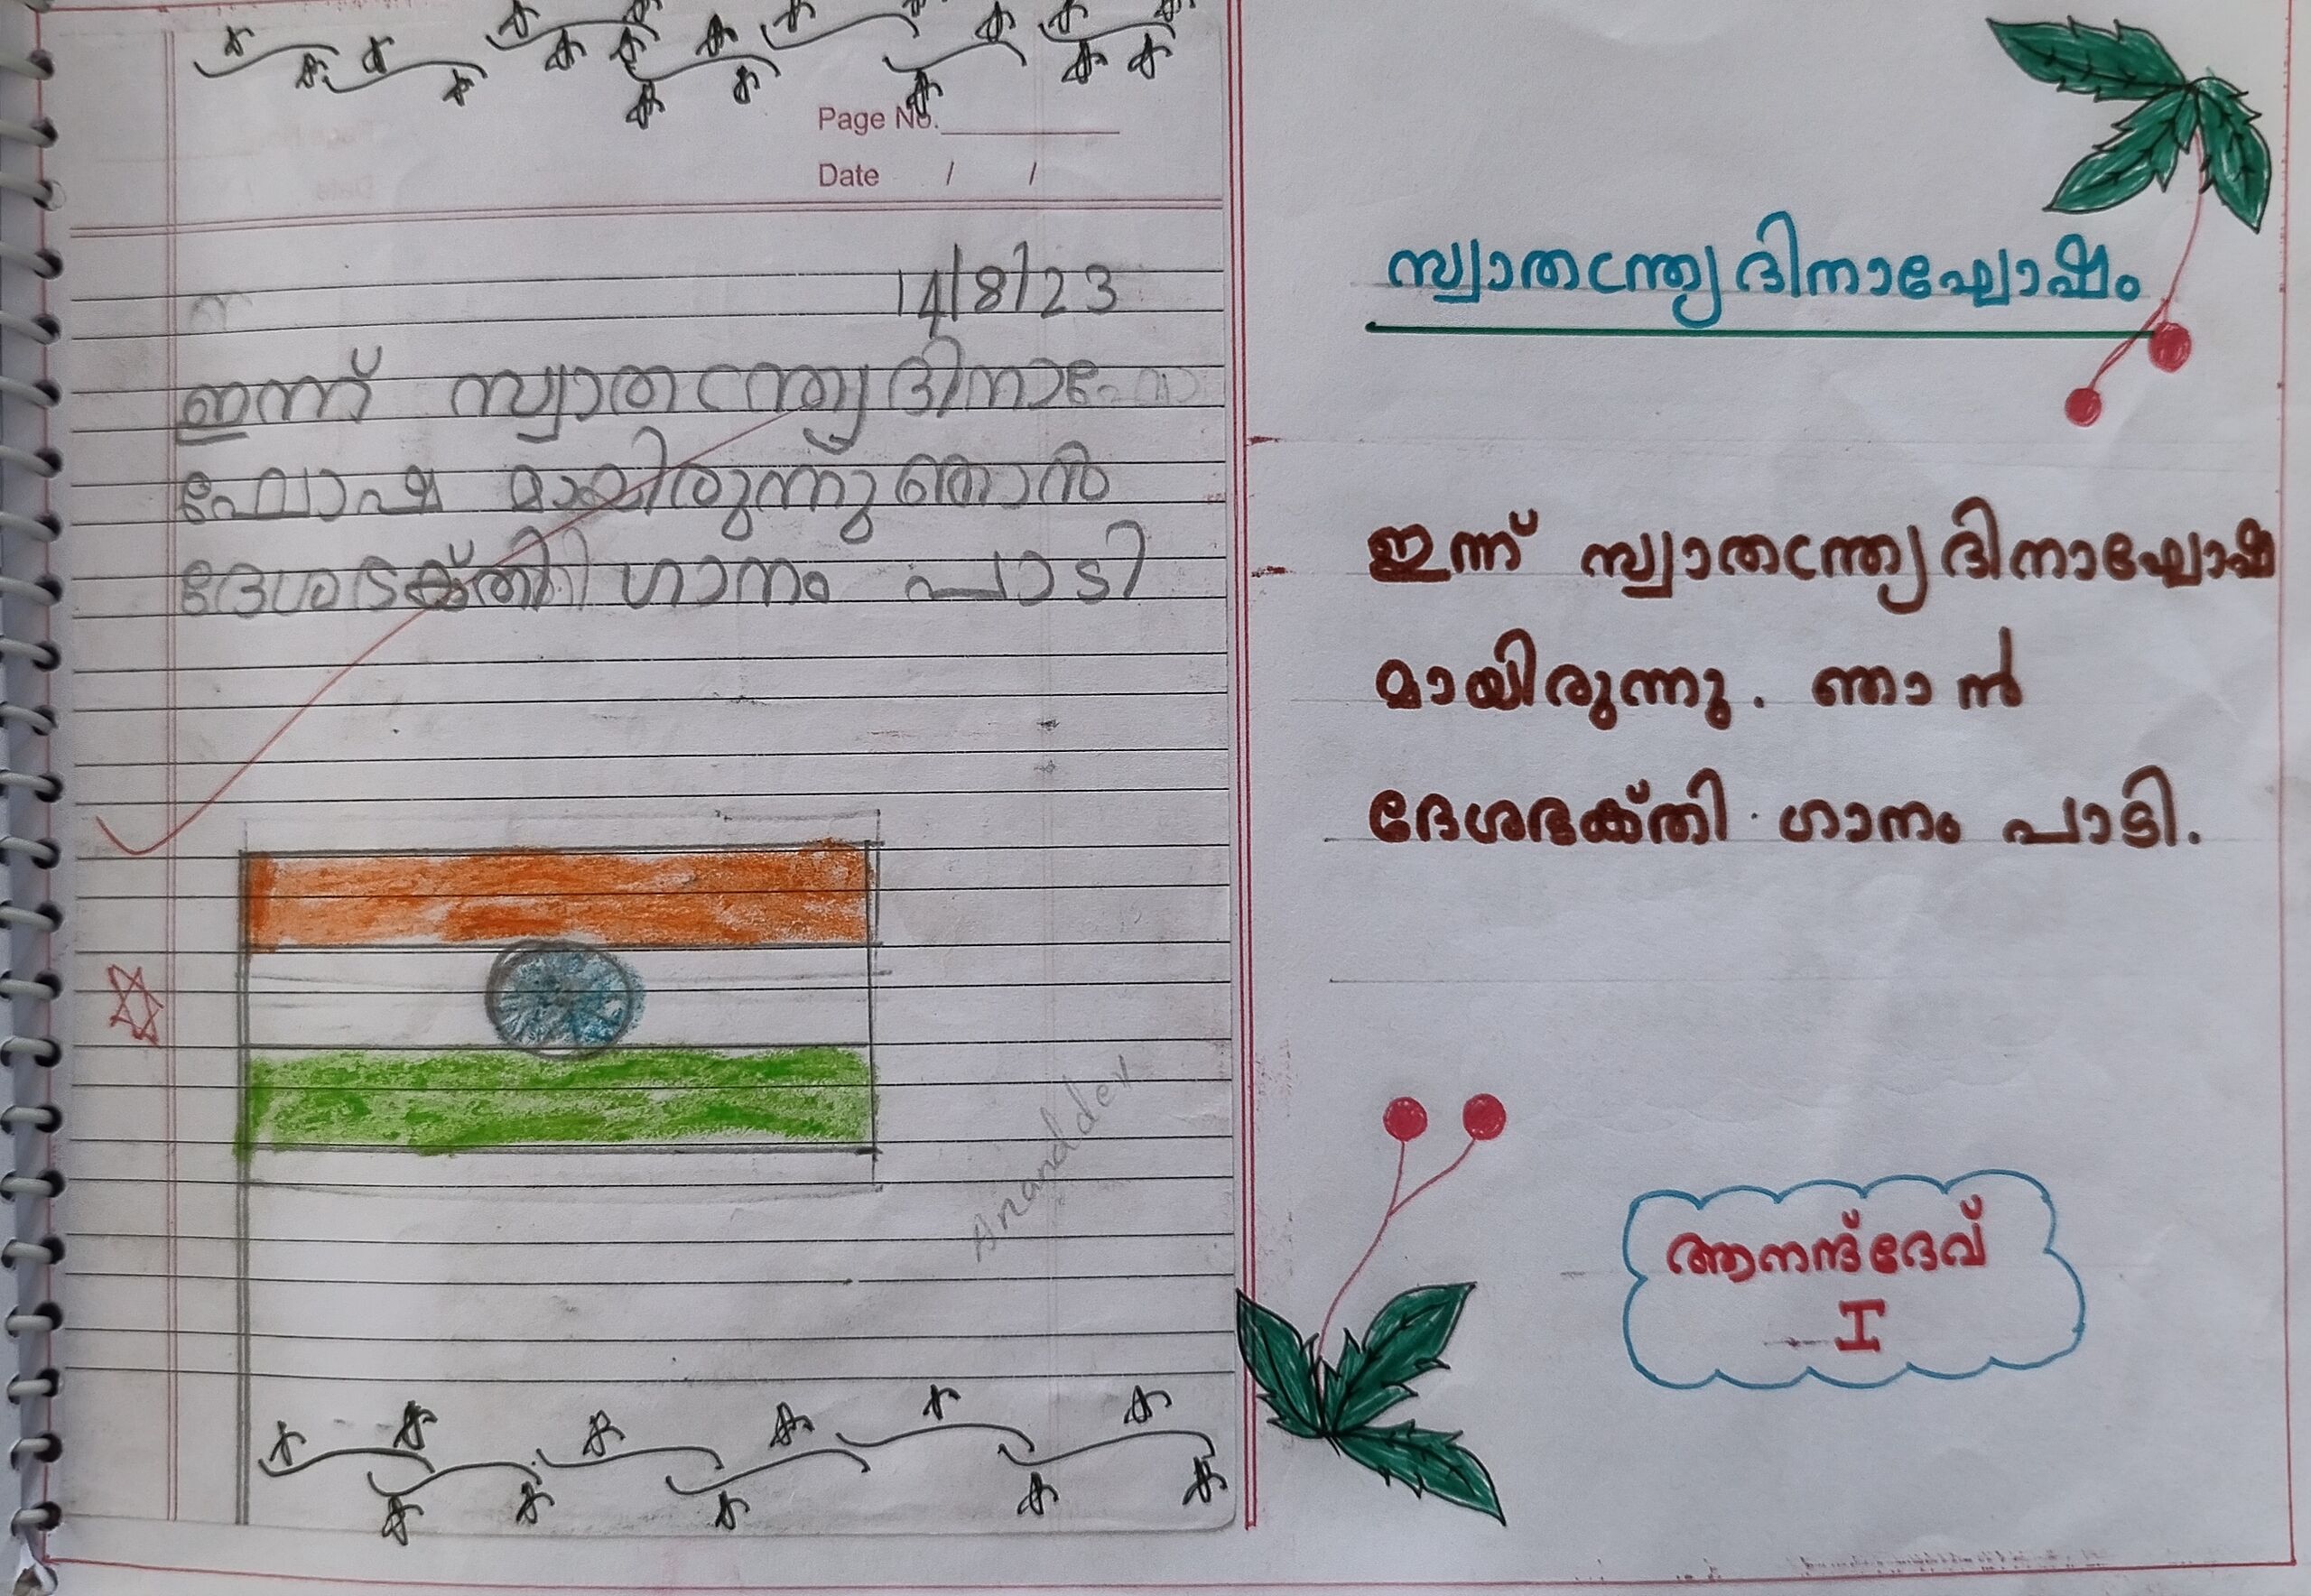 Page No.
Date / /
14/8/23
ഇന്ന് സ്വാതന്ത്ര്യദിനാഘോ
ഘോഷ മായിരുന്നു ഞാൻ
ദേശഭക്തി ഗാനം പാടി
Ananddev
സ്വാതന്ത്ര്യദിനാഘോഷം
ഇന്ന് സ്വാതന്ത്ര്യദിനാഘോഷ
മായിരുന്നു. ഞാൻ
ദേശഭക്തി ഗാനം പാടി.
ആനന്ദ്ദേവ്
I